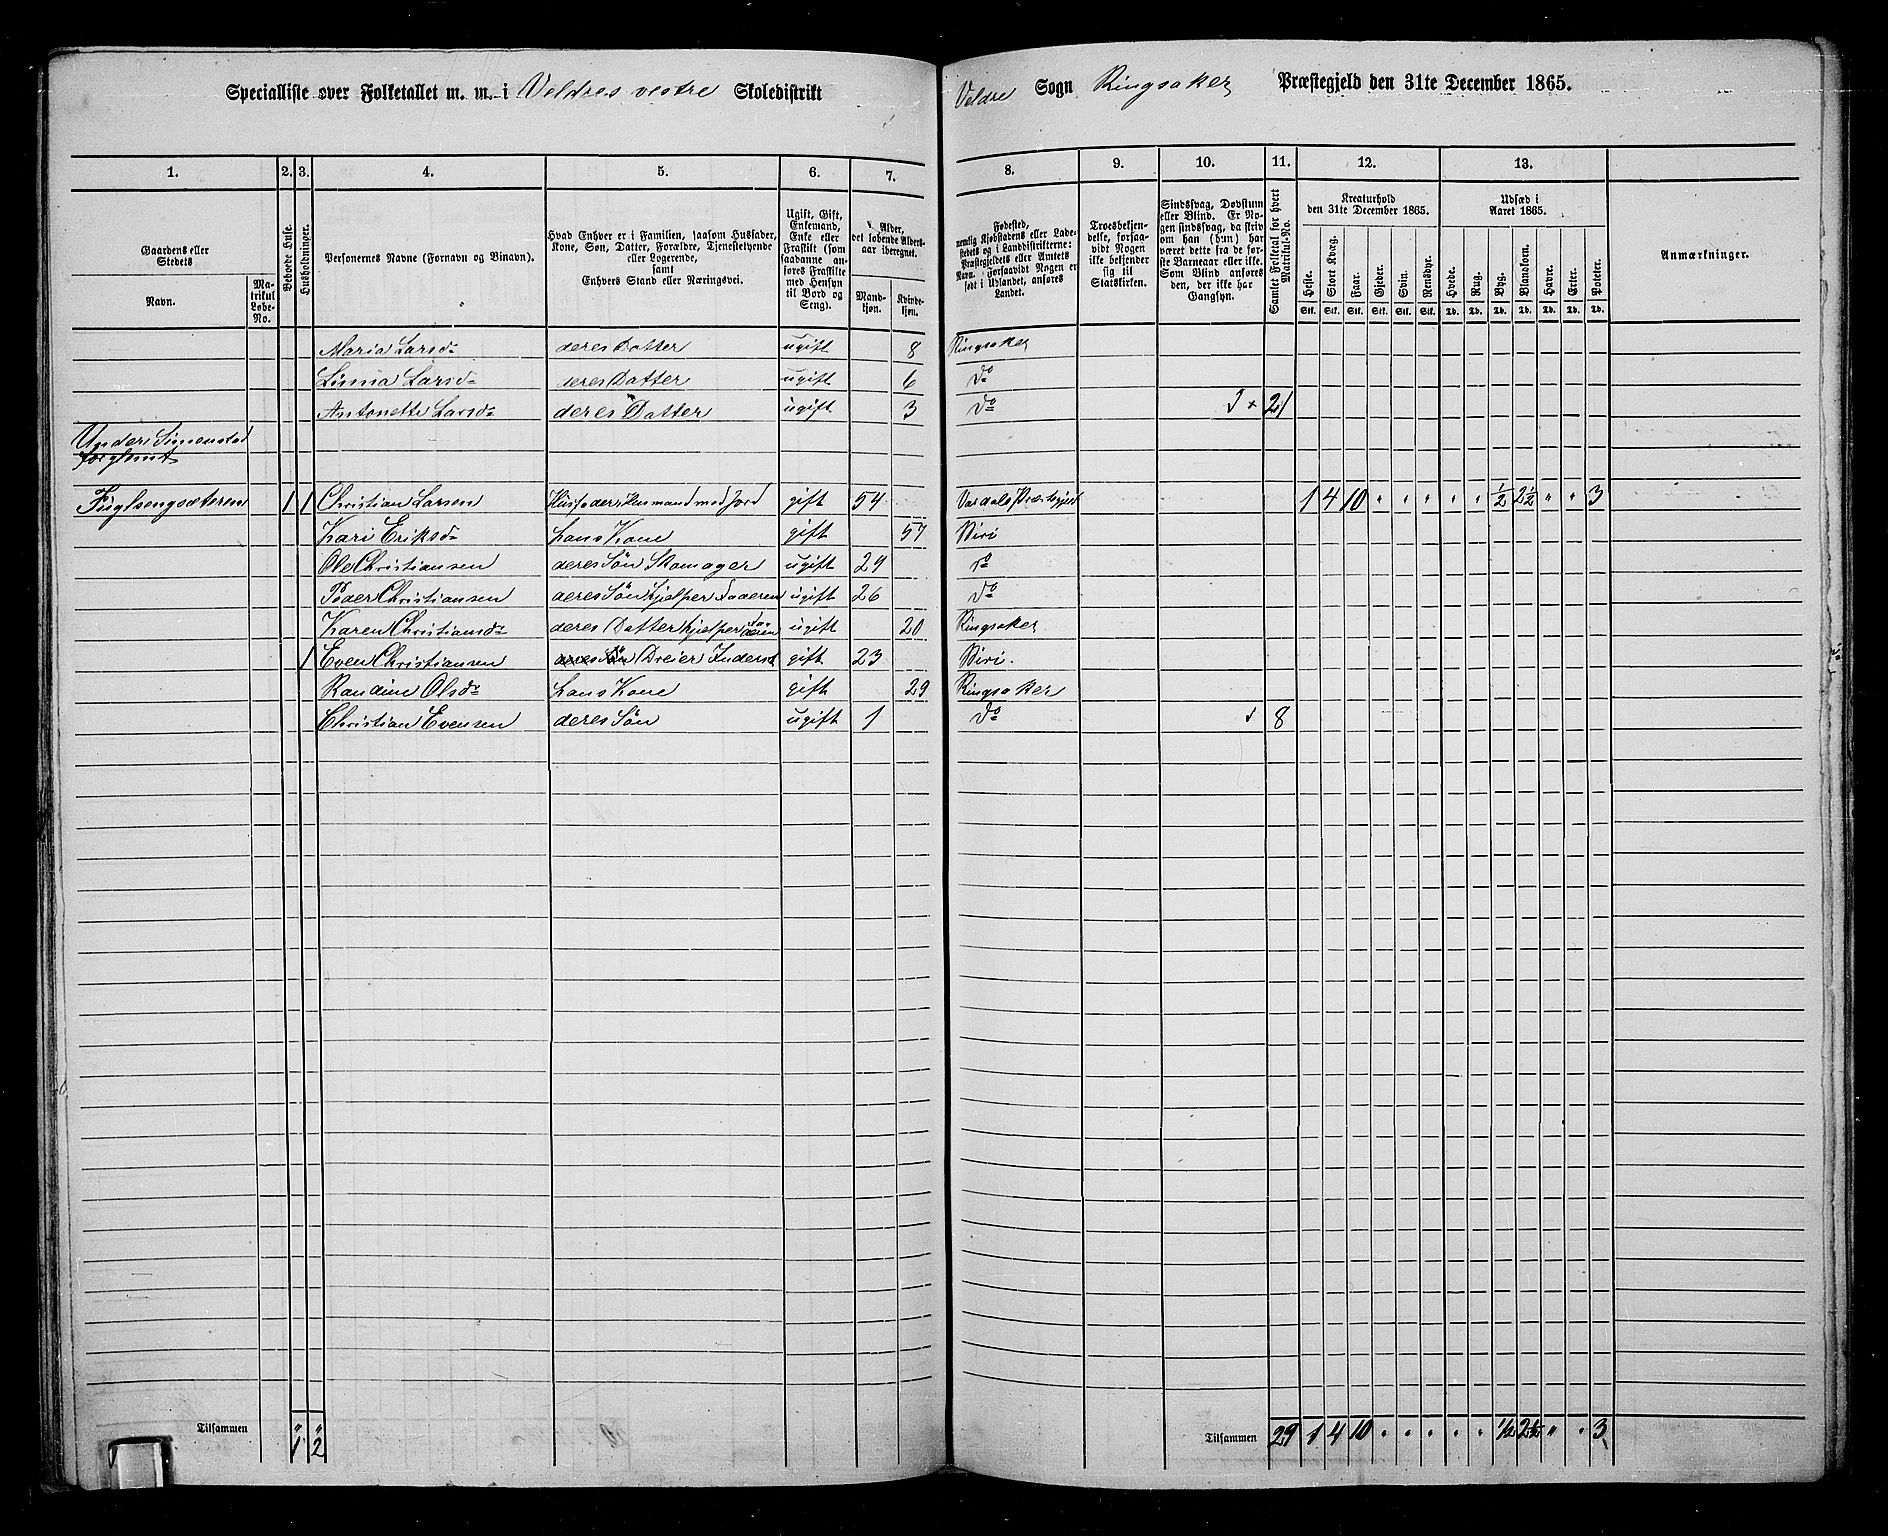 Specialliste over Folketallet m. m. i Veldres vestre Skoledistrikt
Veldre Sogn Ringsaker Præstegjeld den 31te December 1865.
1. 2. 3. 4. 5. 6. 7. 8. 9. 10. 11. 12. 13.
Gaardens eller Stedets
Navn.
Matrikul Løbe-No.
Beboede Huse.
Husholdninger.
Personernes Navne (Fornavn og Binavn).
Hvad Enhver er i Familien, saasom Husfader, Kone, Søn, Datter, Forældre, Tjenestetyende eller Logerende, samt Enhvers Stand eller Næringsvei.
Ugift, Gift, Enkemand, Enke eller Fraskilt (som saadanne anføres Fraskilte med Hensyn til Bord og Seng).
Alder, det løbende Aldersaar iberegnet.
Mandkjøn.
Kvindekjøn.
Fødested, nemlig Kjøbstadens eller Ladestedets og i Landdistrikterne: Præstegjeldets eller Amtets Navn. Forsaavidt Nogen er født i Udlandet, anføres Landet.
Troesbekjendelse, forsaavidt Nogen ikke bekjender sig til Statskirken.
Sindssvag, Døvstum eller Blind. Er Nogen sindssvag, da skriv om han (hun) har været dette fra de første Barneaar eller ikke. Som Blind anføres den, der ikke har Gangsyn.
Samlet Folketal for hvert Matrikul-No.
Kreaturhold den 31te December 1865.
Heste. Stort Kvæg. Faar. Gjeder. Svin. Rensdyr.
Stk. Stk. Stk. Stk. Stk. Stk.
Udsæd i Aaret 1865.
Hvede. Rug. Byg. Blandkorn. Havre. Erter. Poteter.
Td. Td. Td. Td. Td. Td. Td.
Anmærkninger.
Maria Larsd. deres Datter ugift 8 Ringsaker
Larsd. deres Datter ugift 6 do
Antonette Larsd. deres Datter ugift 3 do 21
Under Simenstad
forglemt
Fuglsengsæteren 1 1 Christian Larsen Husfader Husmand med Jord gift 54 Vardals Præstegjeld 1 4 10 " " " " " ½ 2½ " " 3
Kari Eriksd. hans Kone gift 57 Biri
Ole Christiansen deres Søn Skomager ugift 29 do
Peder Christiansen deres Søn hjelper Faderen ugift 26 do
Karen Christiansd. deres Datter hjelper Faderen ugift 20 Ringsaker
1 Even Christiansen deres Søn Dreier Inderst gift 23 Biri.
Randine Olsd. hans Kone gift 29 Ringsaker
Christian Evensen deres Søn ugift 1 do 8
Tilsammen 1 2
Tilsammen 29 1 4 10 " " " " " ½ 2½ " " 3